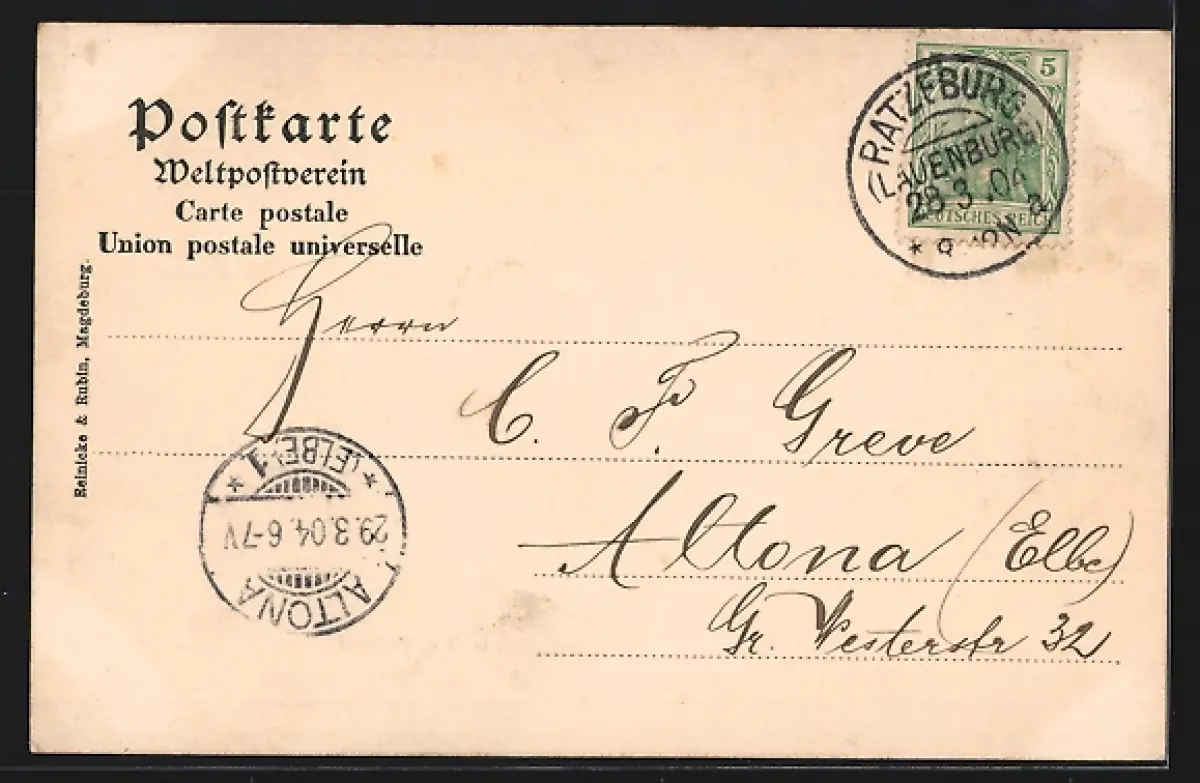 Postkarte
Weltpostverein
Carte postale
Union postale universelle
5
DEUTSCHES REICH
RATZEBURG
(LAUENBURG)
28.3.04
* 8-12N a
Reinicke & Rubin, Magdeburg.
Herrn
C. F. Greve
Altona (Elbe)
Gr. Westerstr 32
ALTONA
29.3.04. 6-7V
* (ELBE) 1 *